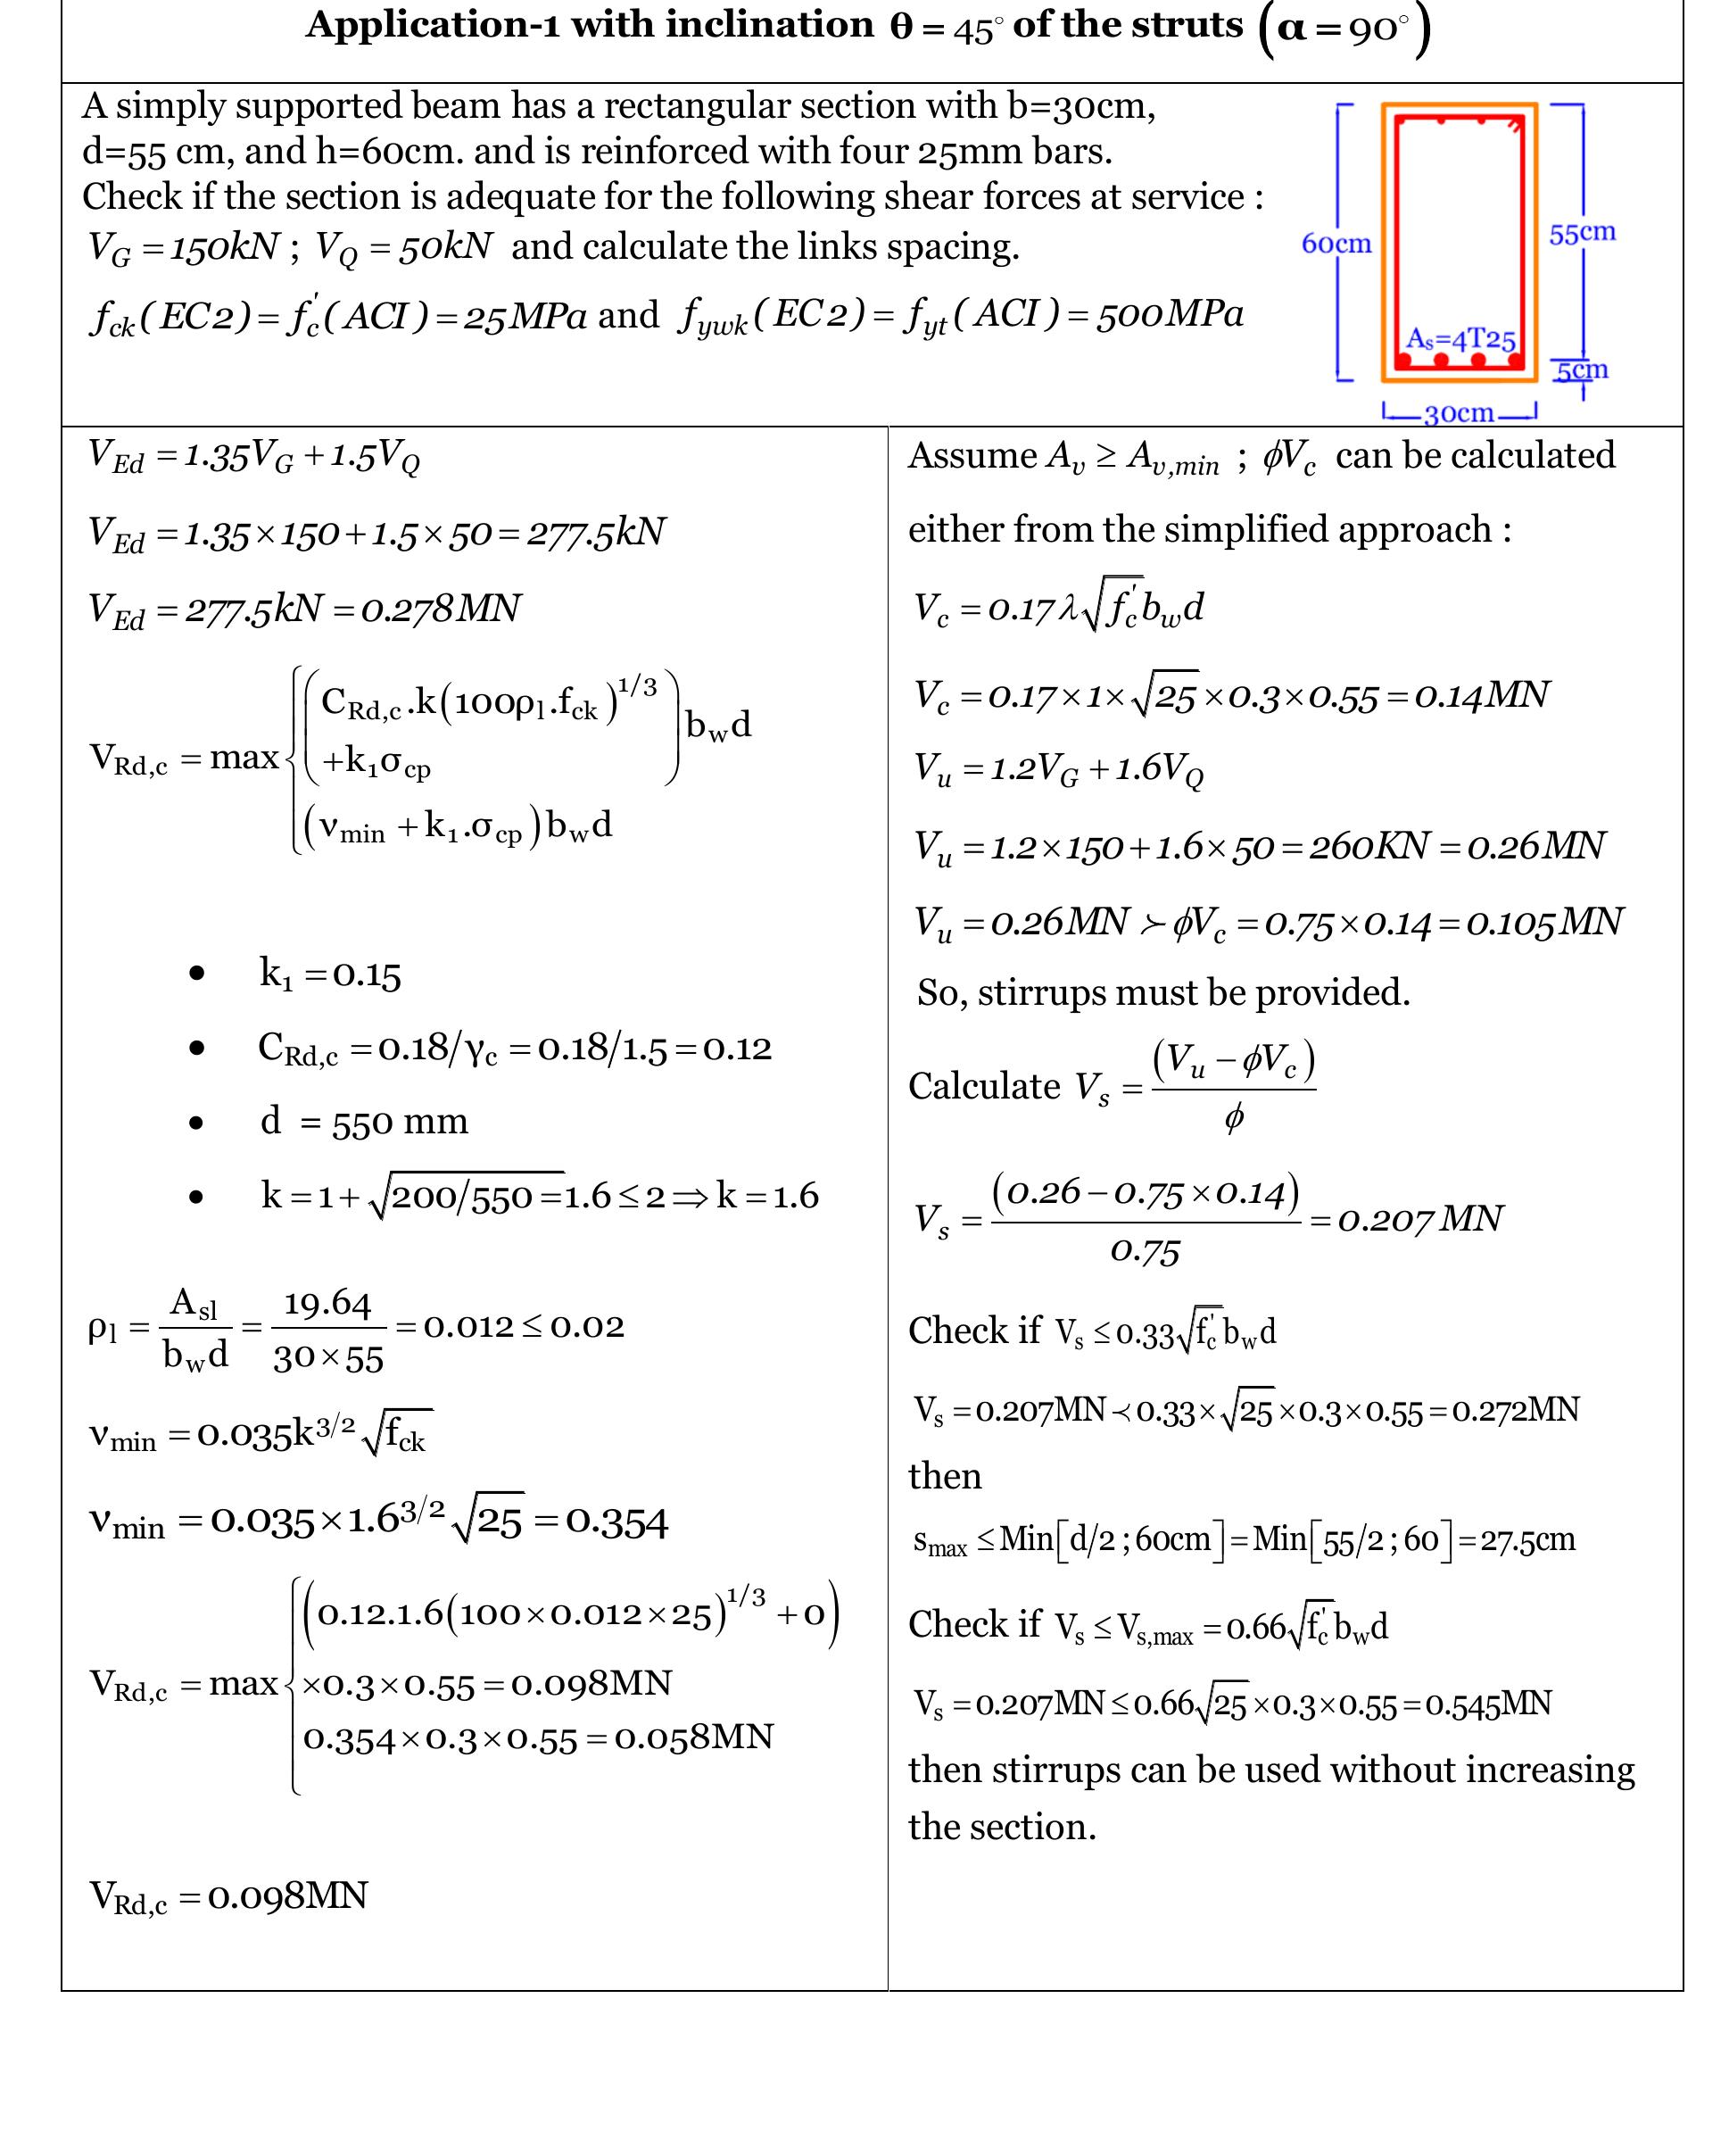 Application-1 with inclination θ = 45° of the struts (α = 90°)
A simply supported beam has a rectangular section with b=30cm,
d=55 cm, and h=60cm. and is reinforced with four 25mm bars.
Check if the section is adequate for the following shear forces at service :
V_G = 150kN ; V_Q = 50kN and calculate the links spacing.
f_ck (EC2) = f_c' (ACI) = 25MPa and f_ywk (EC2) = f_yt (ACI) = 500MPa
60cm
55cm
A_s=4T25
5cm
30cm
V_Ed = 1.35V_G + 1.5V_Q
V_Ed = 1.35×150+1.5×50 = 277.5kN
V_Ed = 277.5kN = 0.278MN
V_Rd,c = max { (C_Rd,c.k(100ρ_l.f_ck)^1/3
+k_1σ_cp) b_wd
(ν_min + k_1.σ_cp)b_wd
• k_1 = 0.15
• C_Rd,c = 0.18/γ_c = 0.18/1.5 = 0.12
• d = 550 mm
• k = 1+ √200/550 = 1.6 ≤ 2 ⇒ k = 1.6
ρ_l = A_sl/b_wd = 19.64/30×55 = 0.012 ≤ 0.02
ν_min = 0.035k^3/2 √f_ck
ν_min = 0.035×1.6^3/2 √25 = 0.354
V_Rd,c = max { (0.12.1.6(100×0.012×25)^1/3 +0)
×0.3×0.55 = 0.098MN
0.354×0.3×0.55 = 0.058MN
V_Rd,c = 0.098MN
Assume A_v ≥ A_v,min ; ϕV_c can be calculated
either from the simplified approach :
V_c = 0.17λ√f_c' b_wd
V_c = 0.17×1×√25×0.3×0.55 = 0.14MN
V_u = 1.2V_G + 1.6V_Q
V_u = 1.2×150+1.6×50 = 260KN = 0.26MN
V_u = 0.26MN ≻ ϕV_c = 0.75×0.14 = 0.105MN
So, stirrups must be provided.
Calculate V_s = (V_u − ϕV_c)/ϕ
V_s = (0.26−0.75×0.14)/0.75 = 0.207MN
Check if V_s ≤ 0.33√f_c' b_wd
V_s = 0.207MN ≺ 0.33×√25×0.3×0.55 = 0.272MN
then
s_max ≤ Min[d/2 ; 60cm] = Min[55/2 ; 60] = 27.5cm
Check if V_s ≤ V_s,max = 0.66√f_c' b_wd
V_s = 0.207MN ≤ 0.66√25×0.3×0.55 = 0.545MN
then stirrups can be used without increasing
the section.